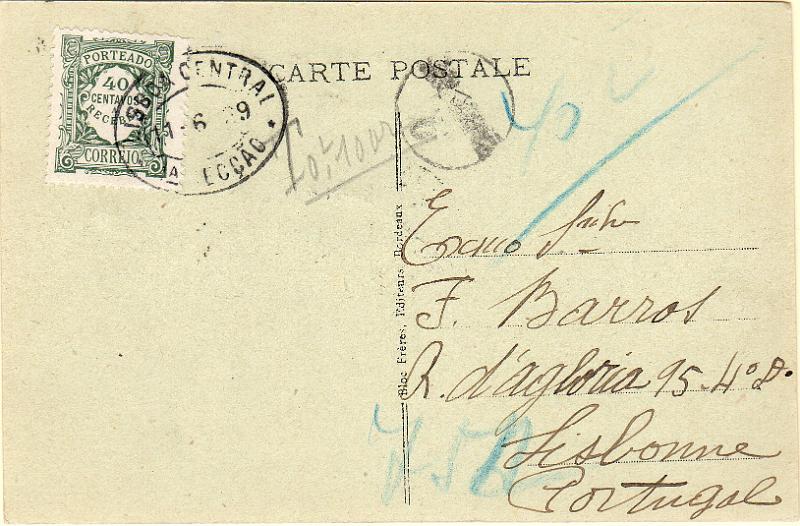 PORTEADO
40
CENTAVOS
RECEBER
CORREIO
CENTRAL
ECÇÃO
CARTE POSTALE
40
Bloc Frères, Editeurs, Bordeaux
Exmo Snr
F. Barros
R. d'agloria 95-4º D.
Lisbonne
Portugal